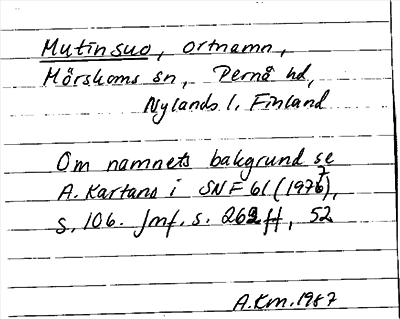 Mutinsuo, ortnamn,
Mörskoms sn, Pernå hd,
Nylands l. Finland
Om namnets bakgrund se
A. Kartano i SNF 61 (1977),
s. 106. Jmf. s. 262 ff, 52
A.Km.1987